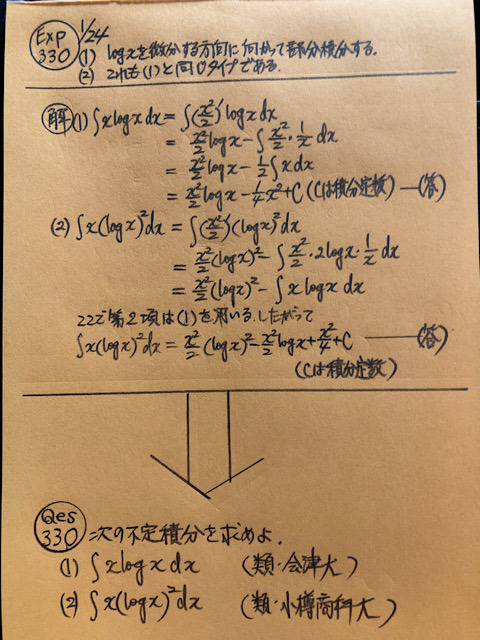 Exp 330 1/24
(1) logxを微分する方向に向かって部分積分する.
(2) これも(1)と同じタイプである.
解 (1) ∫xlogxdx = ∫(x²/2)′logxdx
= x²/2 logx - ∫x²/2・1/x dx
= x²/2 logx - 1/2∫xdx
= x²/2 logx - 1/4x² + C (Cは積分定数) —(答)
(2) ∫x(logx)²dx = ∫(x²/2)′(logx)²dx
= x²/2(logx)² - ∫x²/2・2logx・1/x dx
= x²/2(logx)² - ∫xlogxdx
ここで第2項は(1)を用いる.したがって
∫x(logx)²dx = x²/2(logx)² - x²/2logx + x²/4 + C —(答)
(Cは積分定数)
Qes 330 :次の不定積分を求めよ.
(1) ∫xlogxdx (類・会津大)
(2) ∫x(logx)²dx (類・小樽商科大)